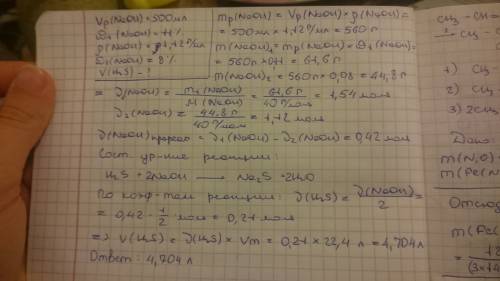 Vр(NaOH) = 500мл
ω₁(NaOH) = 11%
ρ(NaOH) = 1,12г/мл
ω₂(NaOH) = 8%
V(H₂S) - ?
mр(NaOH) = Vр(NaOH) × ρ(NaOH) =
= 500мл × 1,12г/мл = 560г
m(NaOH)₁ = mр(NaOH) × ω₁(NaOH) =
= 560г × 0,11 = 61,6г
m(NaOH)₂ = 560г × 0,08 = 44,8г
= ν₁(NaOH) = m₁(NaOH)/M(NaOH) = 61,6г/40г/моль = 1,54 моль
ν₂(NaOH) = 44,8г/40г/моль = 1,12 моль
ν(NaOH)прореаг = ν₁(NaOH) - ν₂(NaOH) = 0,42 моль
Сост ур-ние реакции:
H₂S + 2NaOH → Na₂S + 2H₂O
По коэф-там реакции: ν(H₂S) = ν(NaOH)/2 =
= 0,42 · 1/2 моль = 0,21 моль
=> V(H₂S) = ν(H₂S) × Vm = 0,21 × 22,4 л = 4,704 л
Ответ: 4,704 л
CH₃ - CH
CH₃ - C
1) CH
2) CH
3) 2CH
Дано:
m(N₂O)
m(Fe(N
m(Fe(
= 12